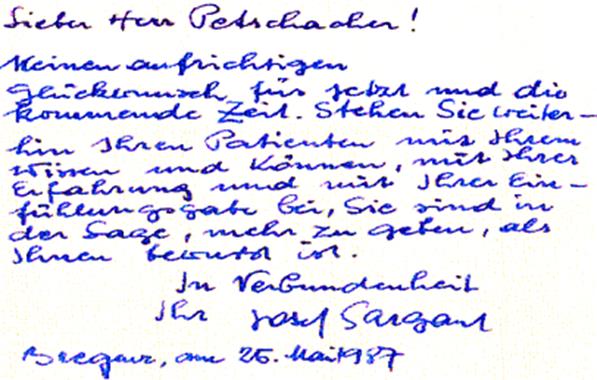 Lieber Herr Petschacher!
Meinen aufrichtigen
Glückwunsch für jetzt und die
kommende Zeit. Stehen Sie weiter-
hin Ihren Patienten mit Ihrem
Wissen und Können, mit Ihrer
Erfahrung und mit Ihrer Ein-
fühlungsgabe bei, Sie sind in
der Lage, mehr zu geben, als
Ihnen bewusst ist.
In Verbundenheit
Ihr Josef Sargant
Bregenz, am 26. Mai 1987